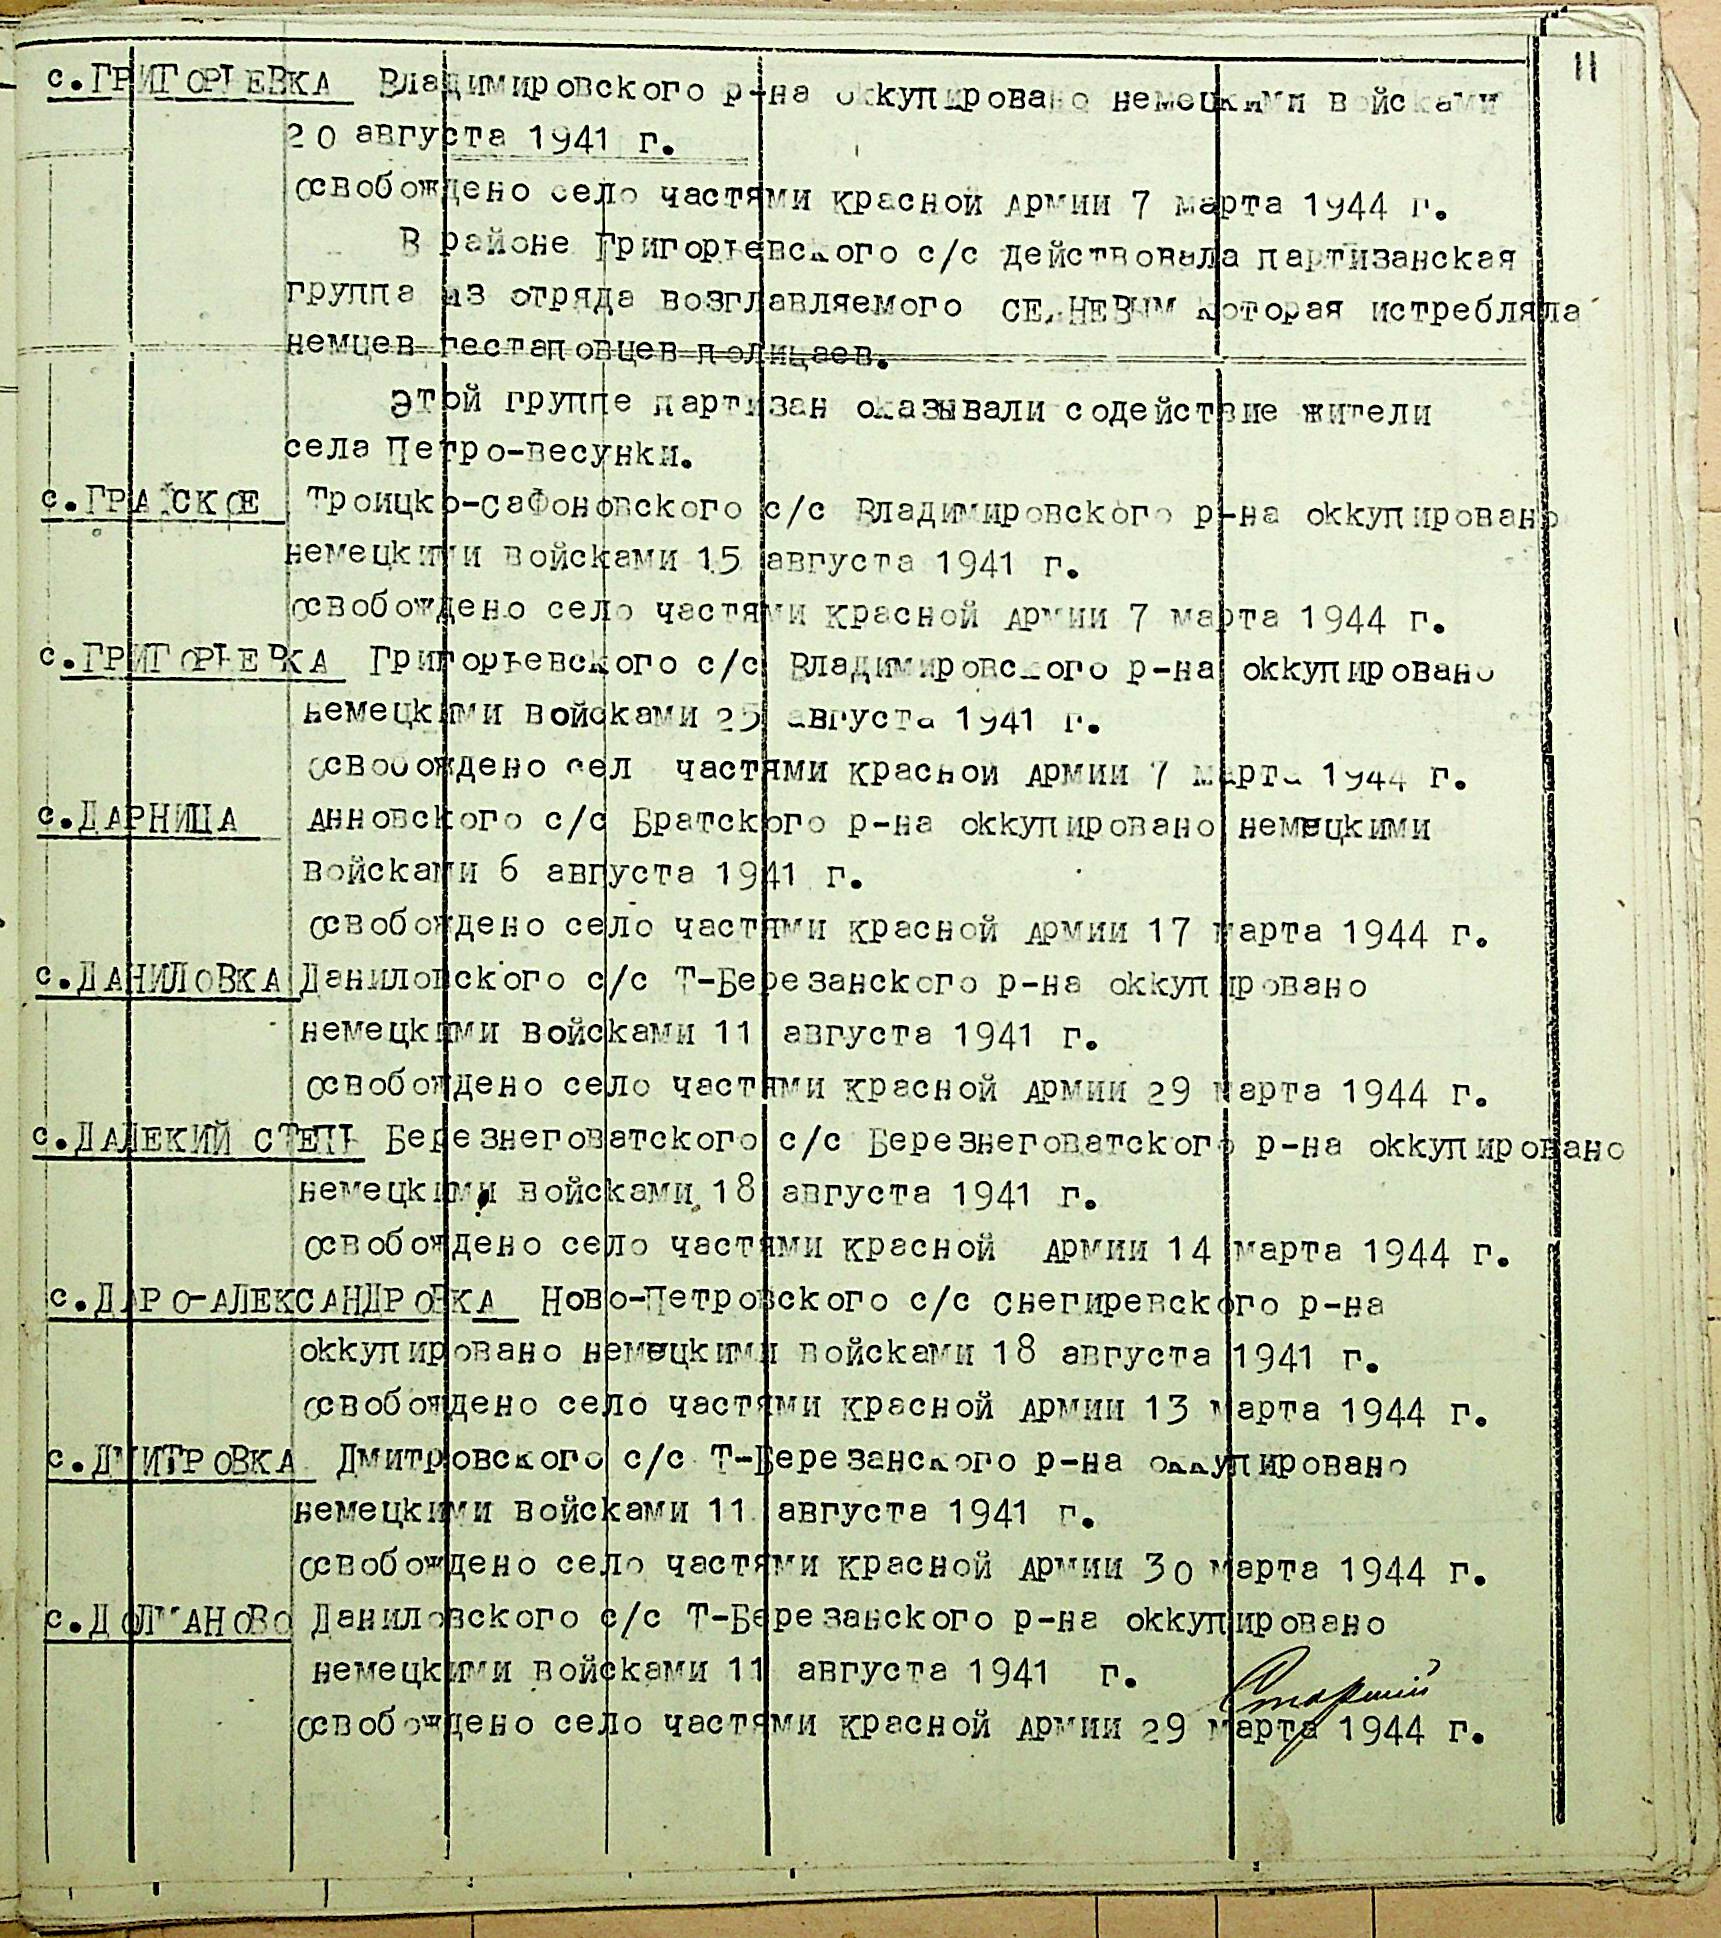 11
с.ГРИГОРЬЕВКА Владимировского р-на оккупировано немецкими войсками
20 августа 1941 г.
освобождено село частями красной армии 7 марта 1944 г.
В районе Григорьевского с/с действовала партизанская
группа из отряда возглавляемого которая истребляла
немцев гестаповцев полицаев.
этой группе партизан оказывали содействие жители
села Петро-весунки.
с.ГРАЙСКОЕ Троицко-сафоновского с/с Владимировского р-на оккупировано
немецкими войсками 15 августа 1941 г.
освобождено село частями красной армии 7 марта 1944 г.
с.ГРИГОРЬЕВКА Григорьевского с/с Владимировского р-на оккупировано
немецкими войсками 25 августа 1941 г.
освобождено сел частями красной армии 7 марта 1944 г.
с.ДАРНИЦА анновского с/с Братского р-на оккупировано немецкими
войсками 6 августа 1941 г.
освобождено село частями красной армии 17 марта 1944 г.
с.ДАНИЛОВКА Даниловского с/с Т-Березанского р-на оккупировано
немецкими войсками 11 августа 1941 г.
освобождено село частями красной армии 29 марта 1944 г.
с.ДАЛЕКИЙ СТЕПЬ Березнеговатского с/с Березнеговатского р-на оккупировано
немецкими войсками 18 августа 1941 г.
освобождено село частями красной армии 14 марта 1944 г.
с.ДАРО-АЛЕКСАНДРОВКА Ново-Петровского с/с снегиревского р-на
оккупировано немецкими войсками 18 августа 1941 г.
освобождено село частями красной армии 13 марта 1944 г.
с.ДМИТРОВКА Дмитровского с/с Т-Березанского р-на оккупировано
немецкими войсками 11 августа 1941 г.
освобождено село частями красной армии 30 марта 1944 г.
с.ДОЛМАНОВО Даниловского с/с Т-Березанского р-на оккупировано
немецкими войсками 11 августа 1941 г.
освобождено село частями красной армии 29 марта 1944 г.